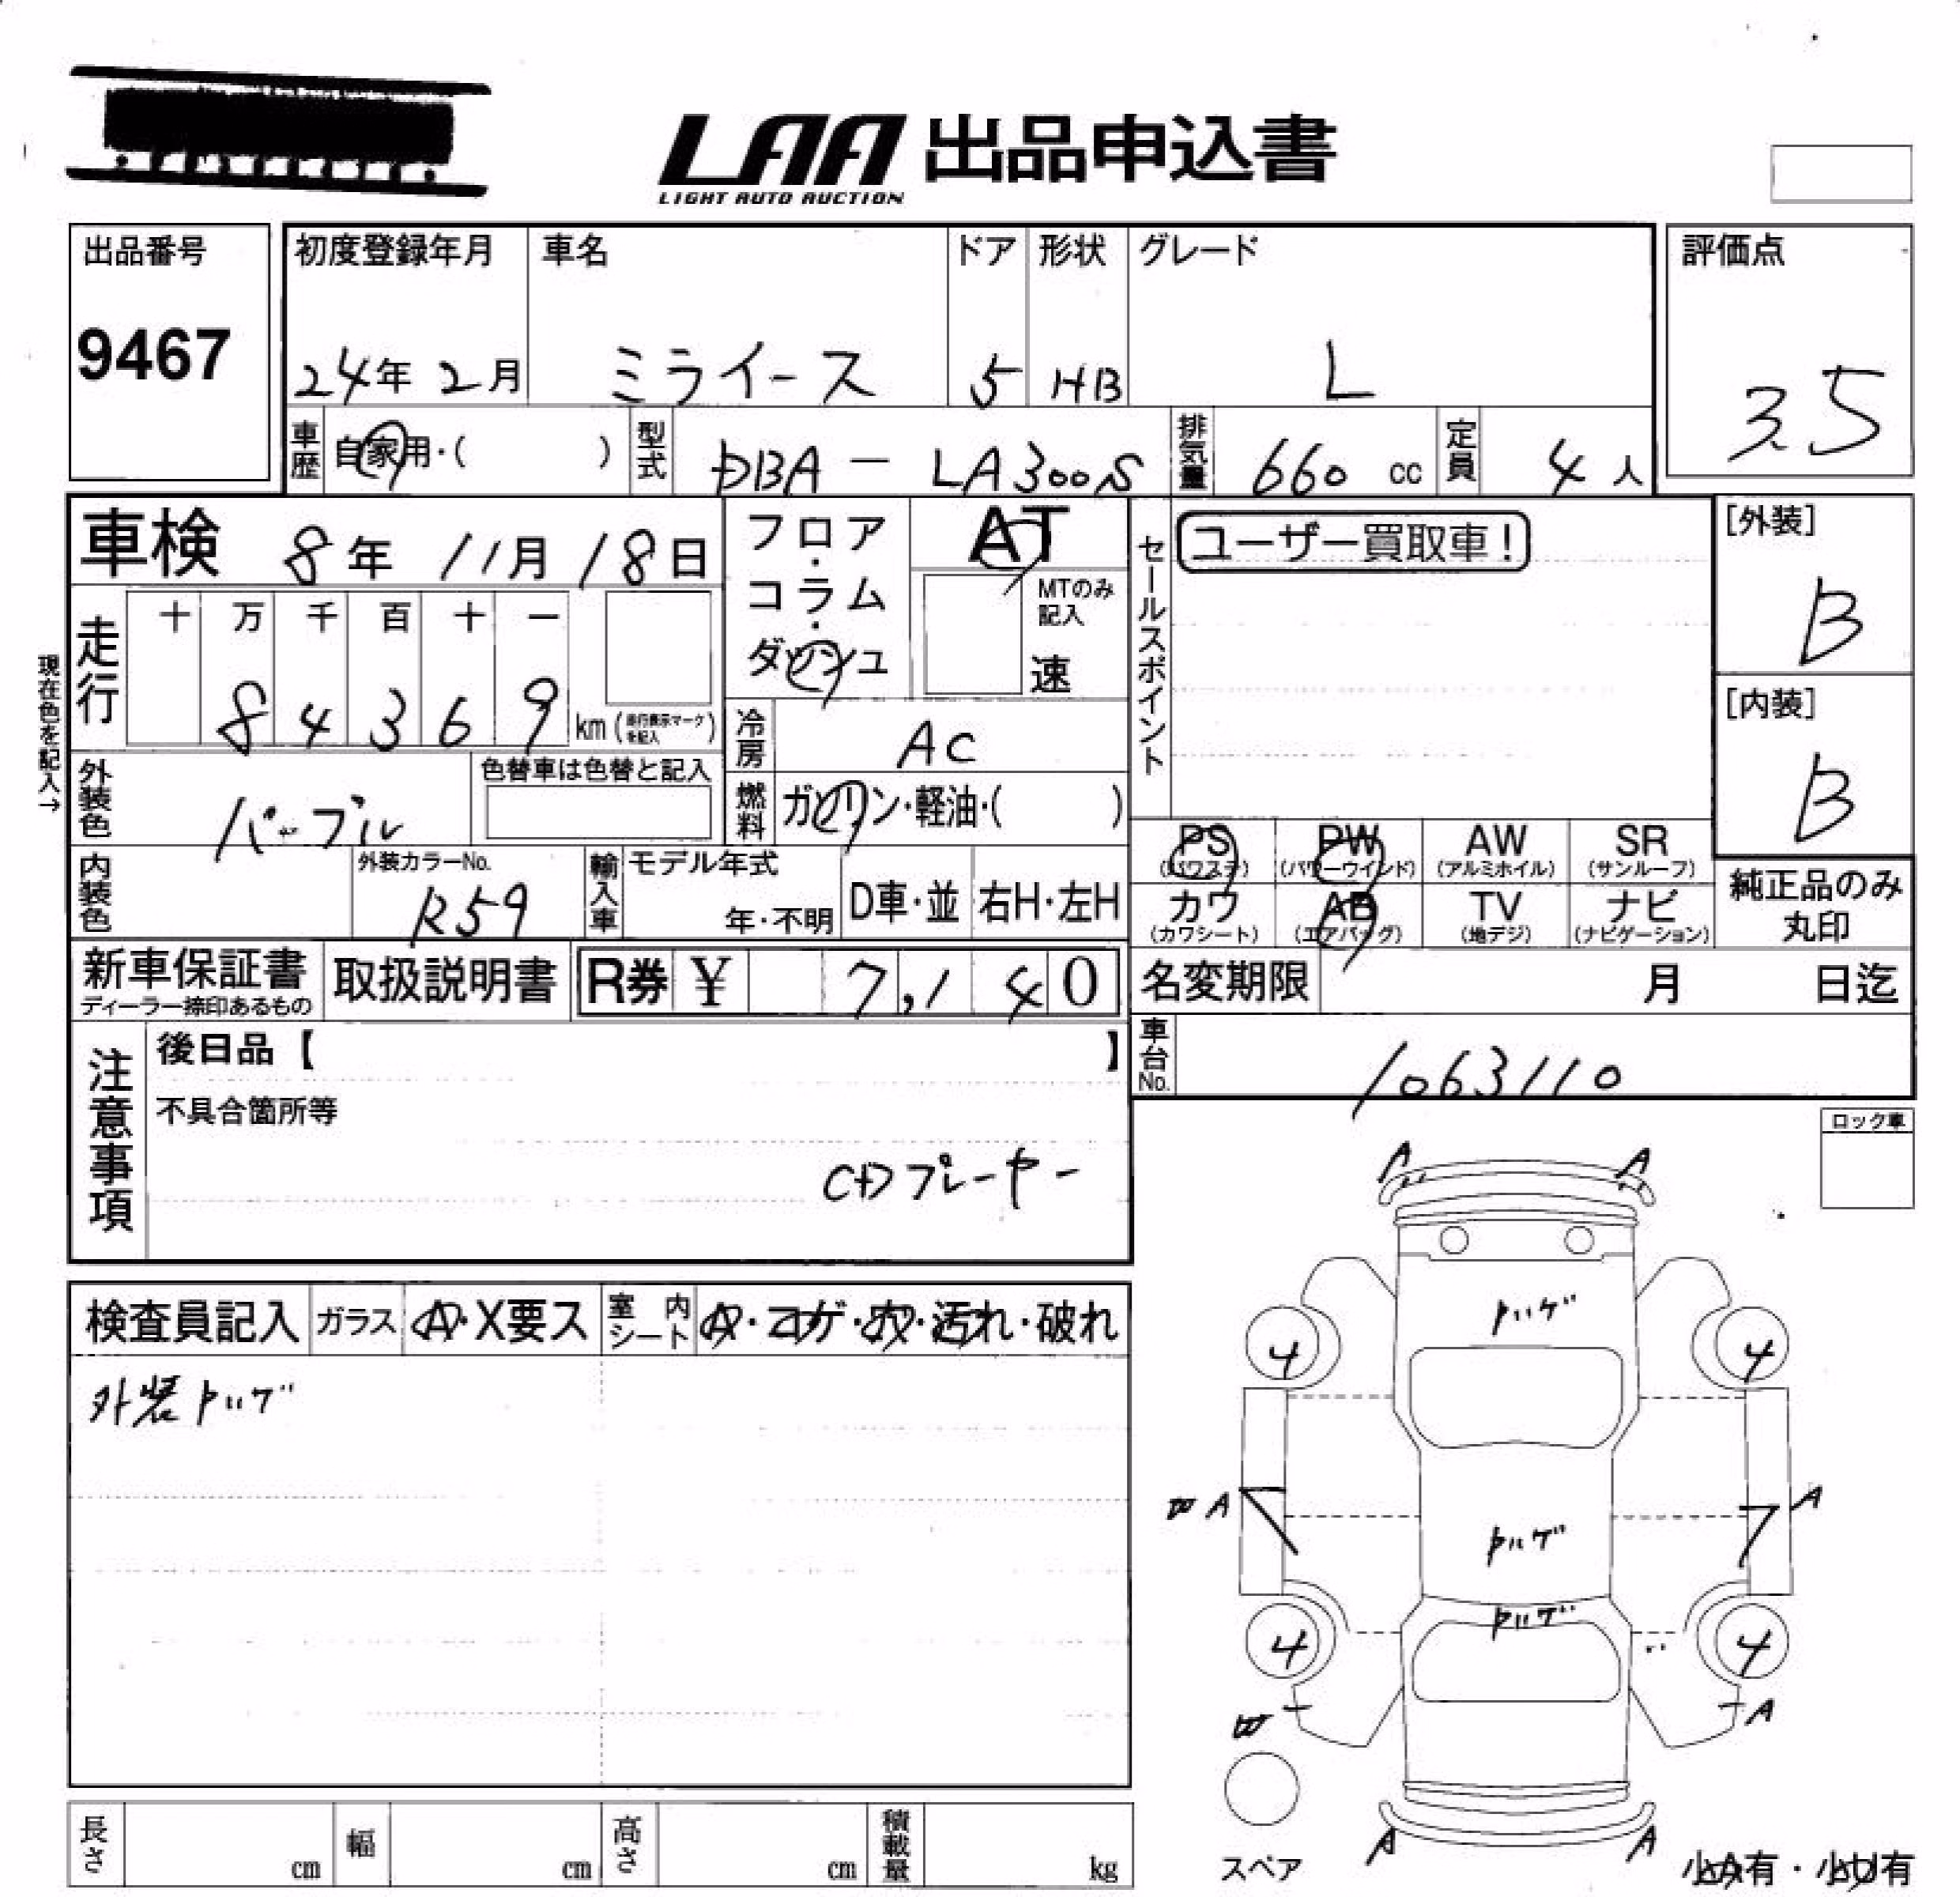 LAA 出品申込書
LIGHT AUTO AUCTION
出品番号
9467
初度登録年月 車名 ドア 形状 グレード
24年 2月 ミライース 5 HB L
評価点
3.5
車歴 自家用・( ) 型式 DBA - LA300S 排気量 660 cc 定員 4 人
車検 8年 11月 18日
フロア・コラム・ダッシュ
AT
MTのみ記入
速
セールスポイント
ユーザー買取車!
[外装]
B
[内装]
B
現在色を記入→
走行 十 万 千 百 十 一
8 4 3 6 9 km (走行表示マークを記入)
冷房 AC
外装色 パープル
色替車は色替と記入
燃料 ガソリン・軽油・( )
内装色
外装カラーNo.
R59
輸入車 モデル年式
年・不明 D車・並 右H・左H
PS PW AW SR
(パワステ) (パワーウインド) (アルミホイル) (サンルーフ)
カワ AB TV ナビ
(カワシート) (エアバッグ) (地デジ) (ナビゲーション)
純正品のみ
丸印
新車保証書 取扱説明書 R券 ¥ 7,140
ディーラー捺印あるもの
名変期限 月 日迄
車台No. 1063110
注意事項
後日品【 】
不具合箇所等
CDプレーヤー
ロック車
検査員記入 ガラス A・X要ス 室内シート A・コゲ・穴・汚れ・破れ
外装トップゲ
A A
4 4
A A
4 4
A
A A
スペア
小A有・小U有
長さ cm 幅 cm 高さ cm 積載量 kg